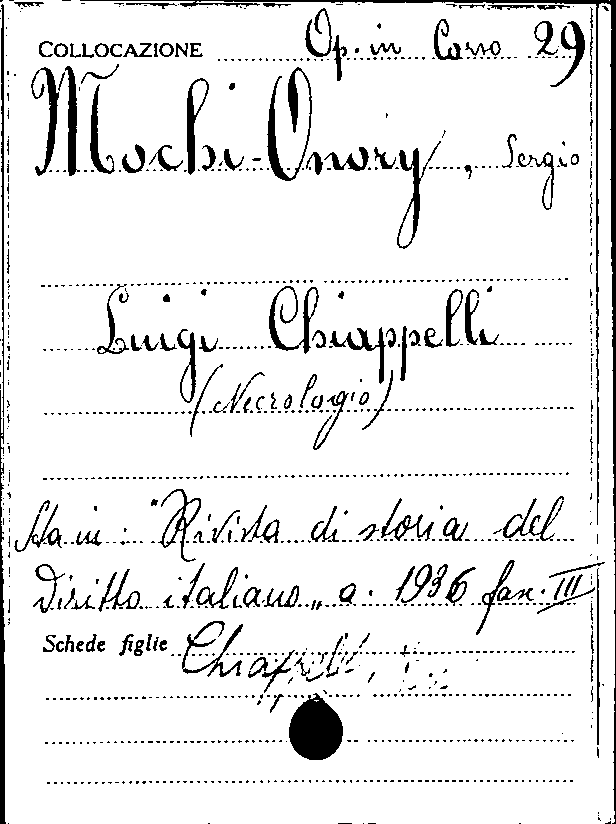 COLLOCAZIONE Op. in Corso 29
Mochi-Onory, Sergio
Luigi Chiappelli
(Necrologio)
Sta in: "Rivista di storia del
Diritto italiano„ a. 1936 fasc. III
Schede figlie Chiappelli,